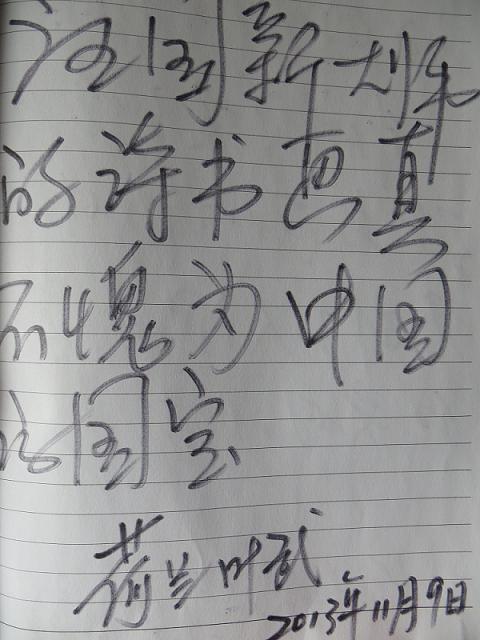 汪国新大师
的诗书画真
不愧为中国
的国宝
荷兰叶武
2013年11月9日